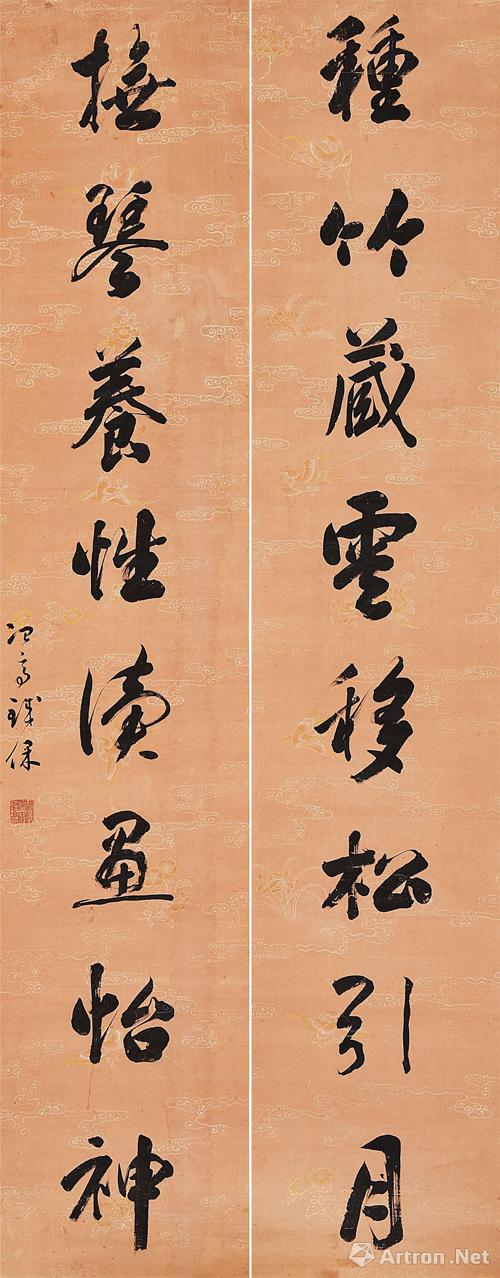 種竹蔵雲移松引月
撫琴養性讀畫怡神
冶亭鐵保
Artron.Net